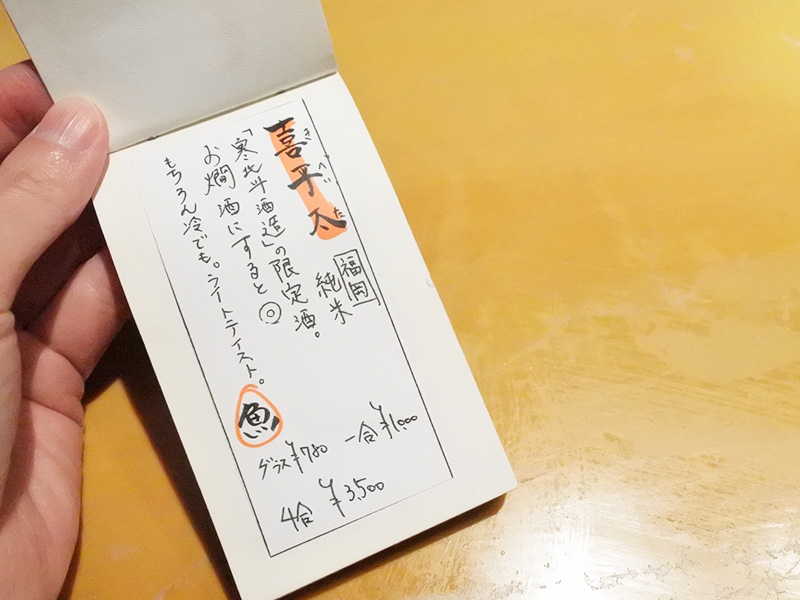 喜平太
きへいた
福岡
純米
「寒北斗酒造」の限定酒。
お燗酒にすると◎
もちろん冷でも。ライトテイスト。
魚
グラス¥780
一合¥1,000
4合 ¥3,500